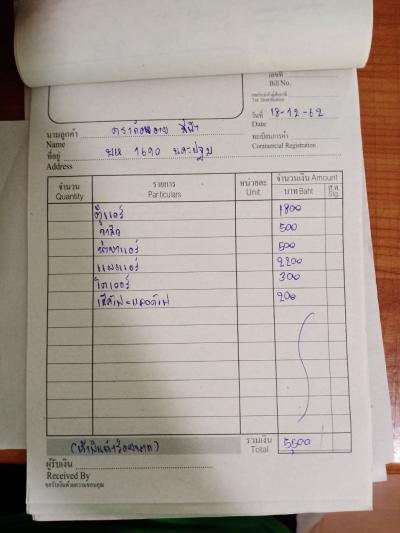 เลขที่
Bill No.
เลขประจำตัวผู้เสียภาษี
Tax Identification
วันที่ 18-12-62
Date
นามลูกค้า
Name
ทะเบียนการค้า
Commercial Registration
ที่อยู่ บห 1690 นครปฐม
Address
จำนวน รายการ หน่วยละ จำนวนเงิน Amount
Quantity Particulars Unit บาท Baht ส.ต. Stg.
ตู้แอร์ 1800
500
น้ำยาแอร์ 500
แผงแอร์ 2200
ไดเออร์ 300
200
(ห้าพันห้าร้อยบาท) รวมเงิน 5,500
Total
ผู้รับเงิน
Received By
ขอรับเงินด้วยความขอบคุณ